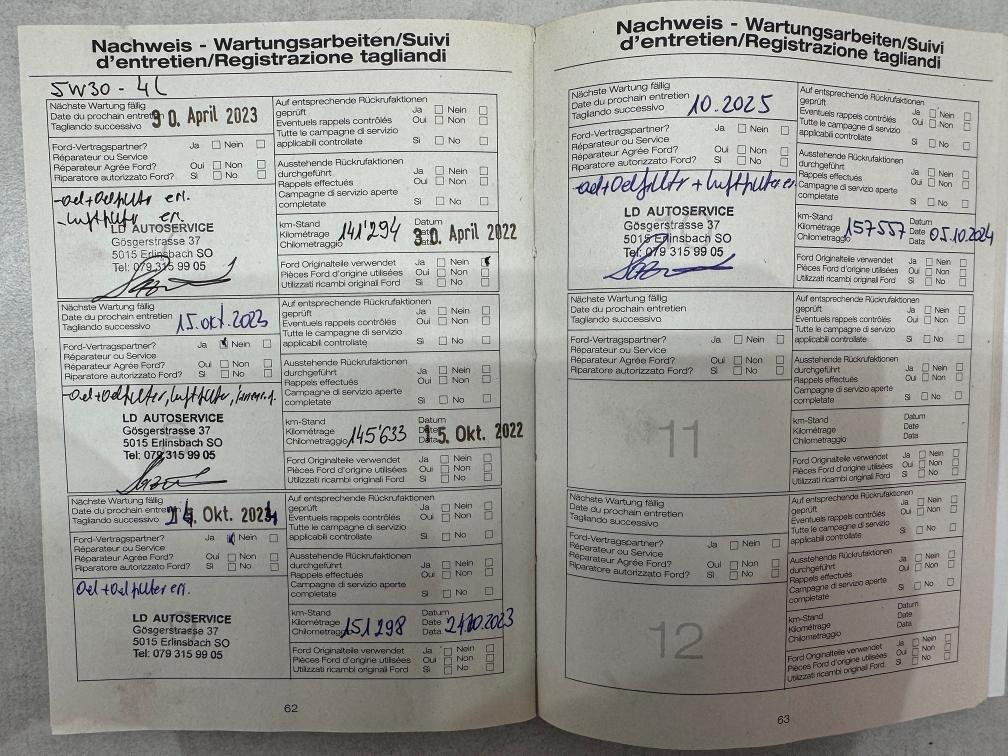 Nachweis - Wartungsarbeiten/Suivi
d'entretien/Registrazione tagliandi
5W30 - 4L
Nächste Wartung fällig
Date du prochain entretien
Tagliando successivo
30. April 2023
Ford-Vertragspartner? Ja Nein
Réparateur ou Service
Réparateur Agrée Ford? Oui Non
Riparatore autorizzato Ford? Si No
-Oel+Oelfilter ern.
-Luftfilter ern.
LD AUTOSERVICE
Gösgerstrasse 37
5015 Erlinsbach SO
Tel: 079 315 99 05
Auf entsprechende Rückrufaktionen
geprüft Ja Nein
Eventuels rappels contrôlés Oui Non
Tutte le campagne di servizio
applicabili controllate Si No
Ausstehende Rückrufaktionen
durchgeführt Ja Nein
Rappels effectués Oui Non
Campagne di servizio aperte
completate Si No
km-Stand
Kilométrage
Chilometraggio
141'294
Datum
Date
Data
30. April 2022
Ford Originalteile verwendet Ja Nein
Pièces Ford d'origine utilisées Oui Non
Utilizzati ricambi originali Ford Si No
Nächste Wartung fällig
Date du prochain entretien
Tagliando successivo
15.okt.2023
Ford-Vertragspartner? Ja Nein
Réparateur ou Service
Réparateur Agrée Ford? Oui Non
Riparatore autorizzato Ford? Si No
-Oel+Oelfilter, Luftfilter,
LD AUTOSERVICE
Gösgerstrasse 37
5015 Erlinsbach SO
Tel: 079 315 99 05
Auf entsprechende Rückrufaktionen
geprüft Ja Nein
Eventuels rappels contrôlés Oui Non
Tutte le campagne di servizio
applicabili controllate Si No
Ausstehende Rückrufaktionen
durchgeführt Ja Nein
Rappels effectués Oui Non
Campagne di servizio aperte
completate Si No
km-Stand
Kilométrage
Chilometraggio
145'633
Datum
Date
Data
15. Okt. 2022
Ford Originalteile verwendet Ja Nein
Pièces Ford d'origine utilisées Oui Non
Utilizzati ricambi originali Ford Si No
Nächste Wartung fällig
Date du prochain entretien
Tagliando successivo
Okt. 2024
Ford-Vertragspartner? Ja Nein
Réparateur ou Service
Réparateur Agrée Ford? Oui Non
Riparatore autorizzato Ford? Si No
Oel+Oelfilter ern.
LD AUTOSERVICE
Gösgerstrasse 37
5015 Erlinsbach SO
Tel: 079 315 99 05
Auf entsprechende Rückrufaktionen
geprüft Ja Nein
Eventuels rappels contrôlés Oui Non
Tutte le campagne di servizio
applicabili controllate Si No
Ausstehende Rückrufaktionen
durchgeführt Ja Nein
Rappels effectués Oui Non
Campagne di servizio aperte
completate Si No
km-Stand
Kilométrage
Chilometraggio
151298
Datum
Date
Data
24.10.2023
Ford Originalteile verwendet Ja Nein
Pièces Ford d'origine utilisées Oui Non
Utilizzati ricambi originali Ford Si No
62
Nachweis - Wartungsarbeiten/Suivi
d'entretien/Registrazione tagliandi
Nächste Wartung fällig
Date du prochain entretien
Tagliando successivo
10.2025
Ford-Vertragspartner? Ja Nein
Réparateur ou Service
Réparateur Agrée Ford? Oui Non
Riparatore autorizzato Ford? Si No
-Oel+Oelfilter + Luftfilter ern.
LD AUTOSERVICE
Gösgerstrasse 37
5015 Erlinsbach SO
Tel: 079 315 99 05
Auf entsprechende Rückrufaktionen
geprüft Ja Nein
Eventuels rappels contrôlés Oui Non
Tutte le campagne di servizio
applicabili controllate Si No
Ausstehende Rückrufaktionen
durchgeführt Ja Nein
Rappels effectués Oui Non
Campagne di servizio aperte
completate Si No
km-Stand
Kilométrage
Chilometraggio
157557
Datum
Date
Data
05.10.2024
Ford Originalteile verwendet Ja Nein
Pièces Ford d'origine utilisées Oui Non
Utilizzati ricambi originali Ford Si No
Nächste Wartung fällig
Date du prochain entretien
Tagliando successivo
Ford-Vertragspartner? Ja Nein
Réparateur ou Service
Réparateur Agrée Ford? Oui Non
Riparatore autorizzato Ford? Si No
11
Auf entsprechende Rückrufaktionen
geprüft Ja Nein
Eventuels rappels contrôlés Oui Non
Tutte le campagne di servizio
applicabili controllate Si No
Ausstehende Rückrufaktionen
durchgeführt Ja Nein
Rappels effectués Oui Non
Campagne di servizio aperte
completate Si No
km-Stand
Kilométrage
Chilometraggio
Datum
Date
Data
Ford Originalteile verwendet Ja Nein
Pièces Ford d'origine utilisées Oui Non
Utilizzati ricambi originali Ford Si No
Nächste Wartung fällig
Date du prochain entretien
Tagliando successivo
Ford-Vertragspartner? Ja Nein
Réparateur ou Service
Réparateur Agrée Ford? Oui Non
Riparatore autorizzato Ford? Si No
12
Auf entsprechende Rückrufaktionen
geprüft Ja Nein
Eventuels rappels contrôlés Oui Non
Tutte le campagne di servizio
applicabili controllate Si No
Ausstehende Rückrufaktionen
durchgeführt Ja Nein
Rappels effectués Oui Non
Campagne di servizio aperte
completate Si No
km-Stand
Kilométrage
Chilometraggio
Datum
Date
Data
Ford Originalteile verwendet Ja Nein
Pièces Ford d'origine utilisées Oui Non
Utilizzati ricambi originali Ford Si No
63